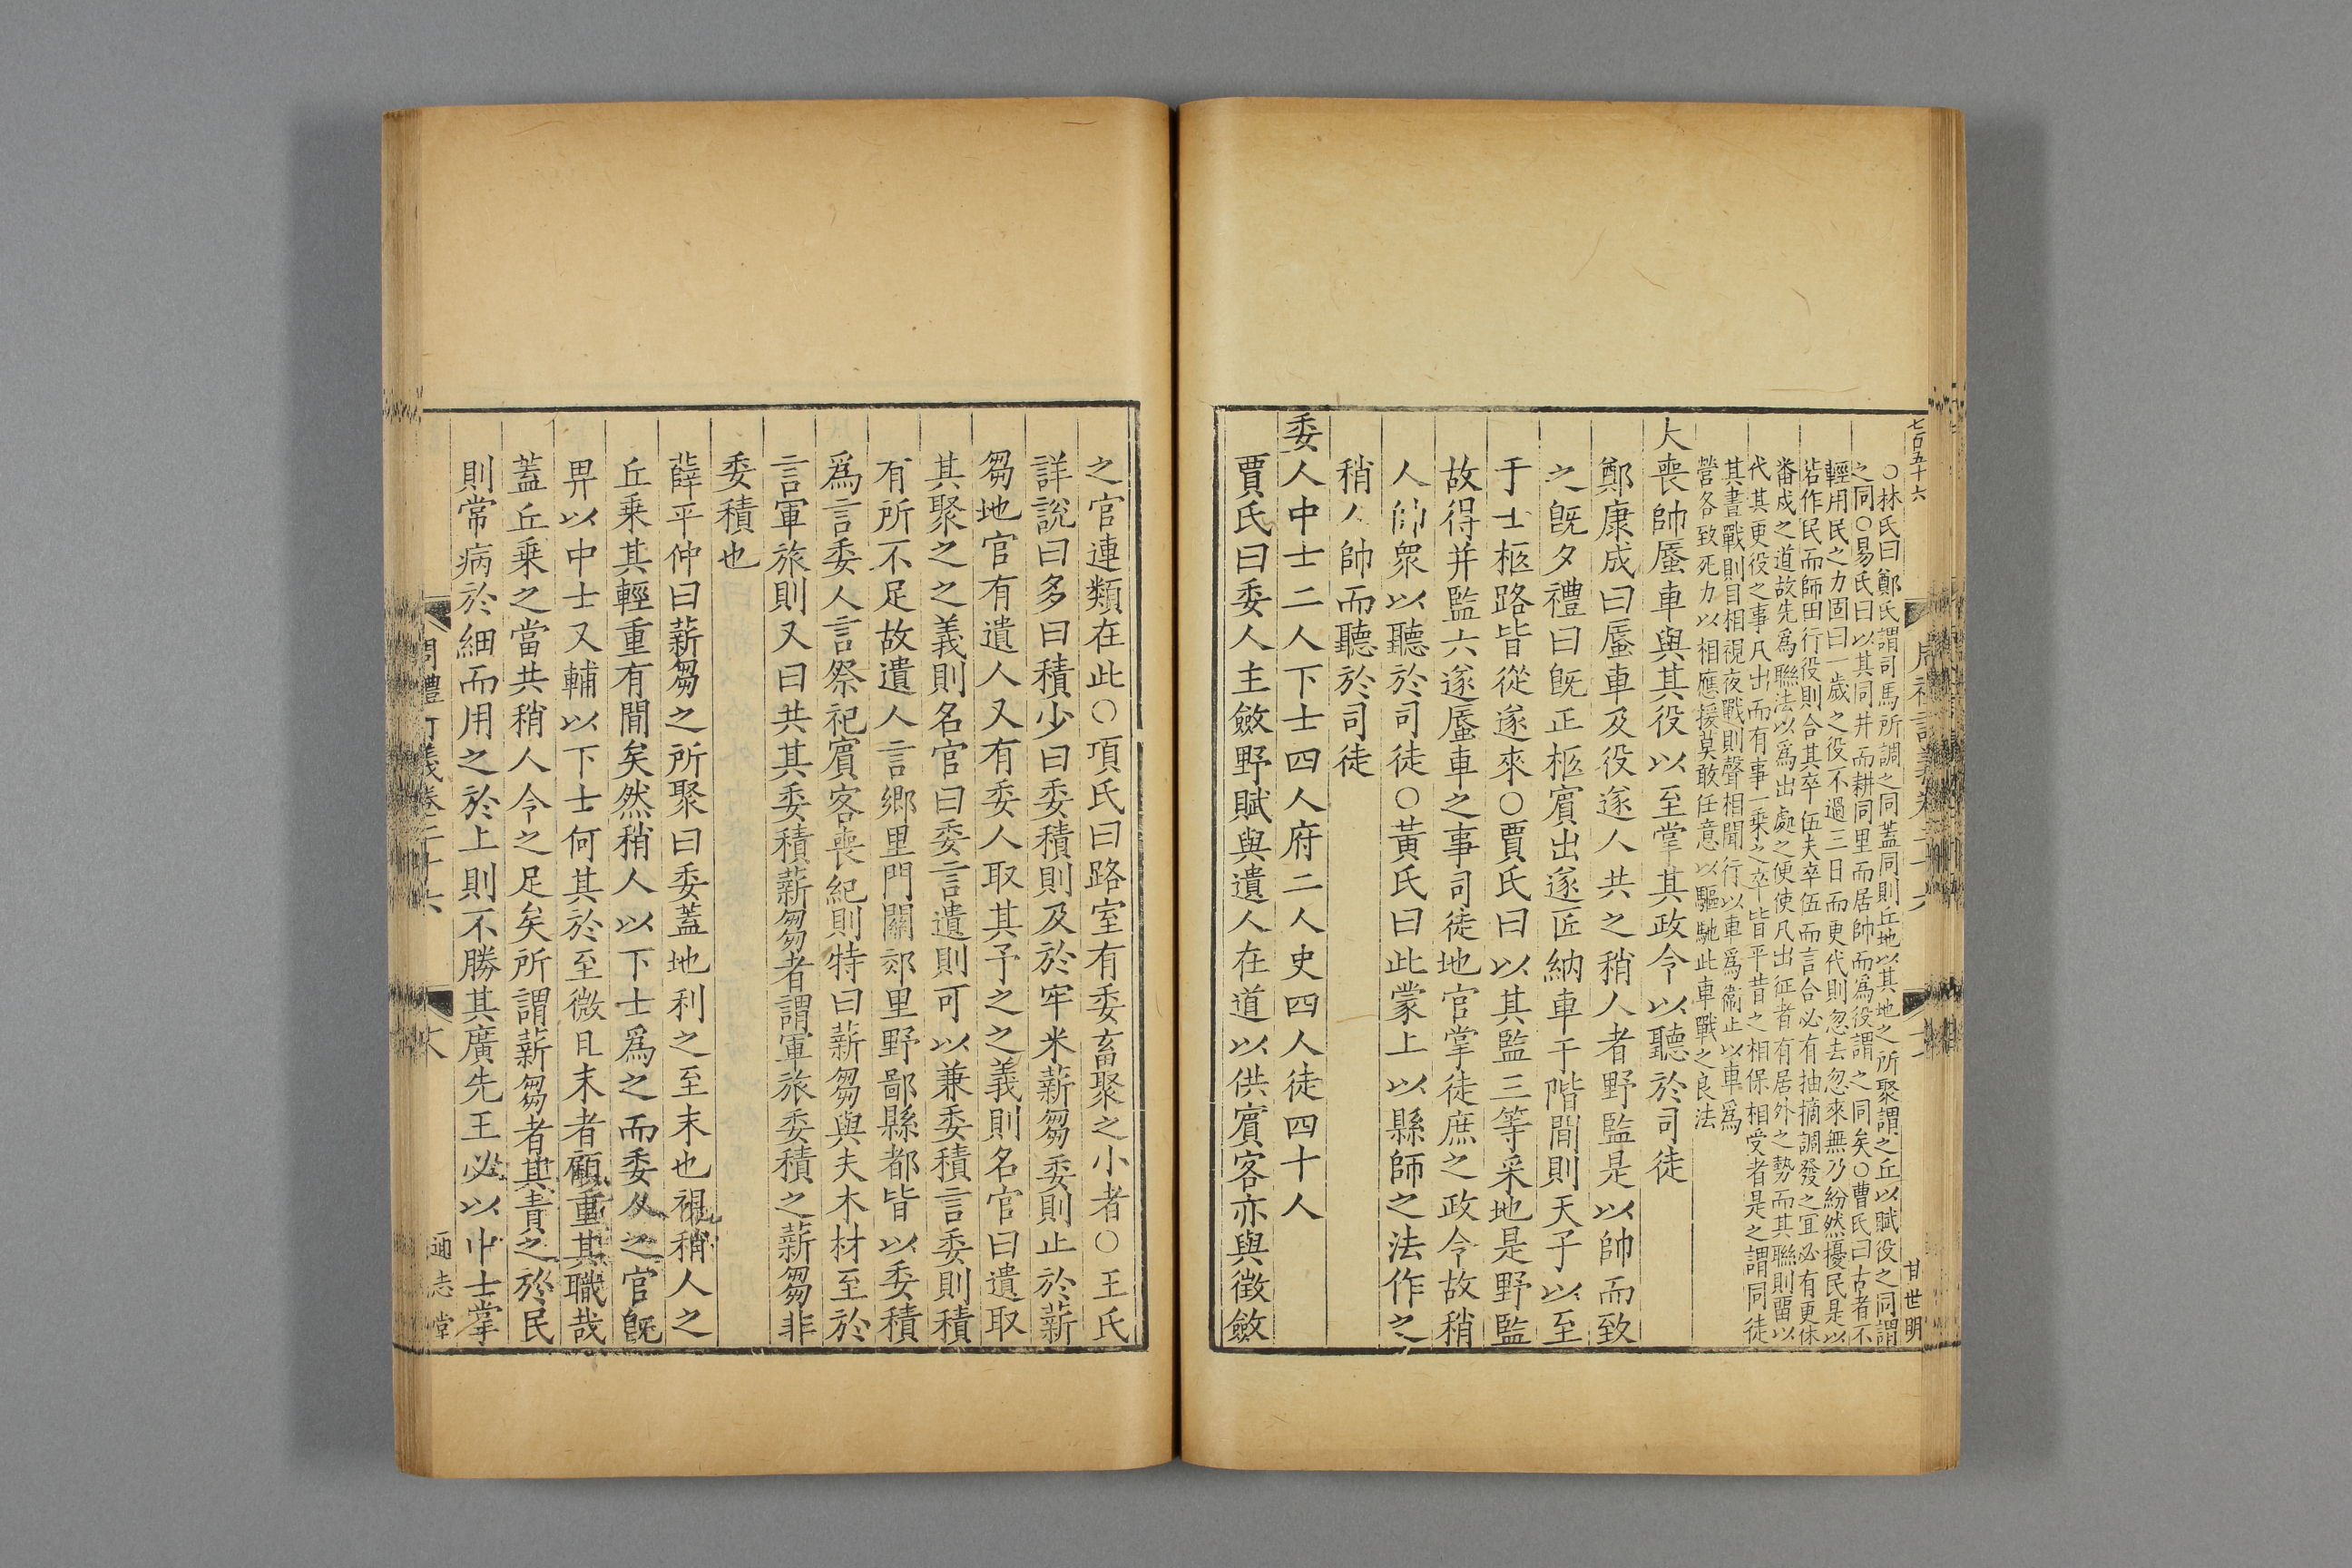 七百五十六
甘世明
○林氏曰鄭氏謂司馬所調之同蓋同則丘地以其地之所聚謂之丘以賦役之同謂
之同○易氏曰以其同井而耕同里而居帥而爲役謂之同矣○曹氏曰古者不
輕用民之力固曰一歲之役不過三日而更代則忽去忽來無乃紛然擾民是以
若作民而師田行役則合其卒伍夫卒伍而言合必有抽摘調發之宜必有更休
畨成之道故先爲聯法以爲出處之便使凡出征者有居外之勢而其聯則畱以
代其更役之事凡出而有事一乗之卒皆平昔之相保相受者是之謂同徒
其晝戰則目相視夜戰則聲相聞行以車爲衞止以車爲
營各致死力以相應援莫敢任意以驅馳此車戰之良法
大喪帥蜃車與其役以至掌其政令以聽於司徒
鄭康成曰蜃車及役遂人共之稍人者野監是以帥而致
之旣夕禮曰旣正柩賓出遂匠納車于階間則天子以至
于士柩路皆從遂來○賈氏曰以其監三等采地是野監
故得并監六遂蜃車之事司徒地官掌徒庶之政令故稍
人帥衆以聽於司徒○黃氏曰此蒙上以縣師之法作之
稍人帥而聽於司徒
委人中士二人下士四人府二人史四人徒四十人
賈氏曰委人主斂野賦與遺人在道以供賓客亦與徵斂
之官連類在此○項氏曰路室有委畜聚之小者○王氏
詳說曰多曰積少曰委積則及於牢米薪芻委則止於薪
芻地官有遺人又有委人取其予之之義則名官曰遺取
其聚之之義則名官曰委言遺則可以兼委積言委則積
有所不足故遺人言鄉里門關郊里野鄙縣都皆以委積
爲言委人言祭祀賓客喪紀則特曰薪芻與夫木材至於
言軍旅則又曰共其委積薪芻者謂軍旅委積之薪芻非
委積也
薛平仲曰薪芻之所聚曰委蓋地利之至末也視稍人之
丘乗其輕重有間矣然稍人以下士爲之而委人之官旣
畀以中士又輔以下士何其於至微且末者顧重其職哉
蓋丘乗之當共稍人令之足矣所謂薪芻者其責之於民
則常病於細而用之於上則不勝其廣先王必以中士掌
通志堂